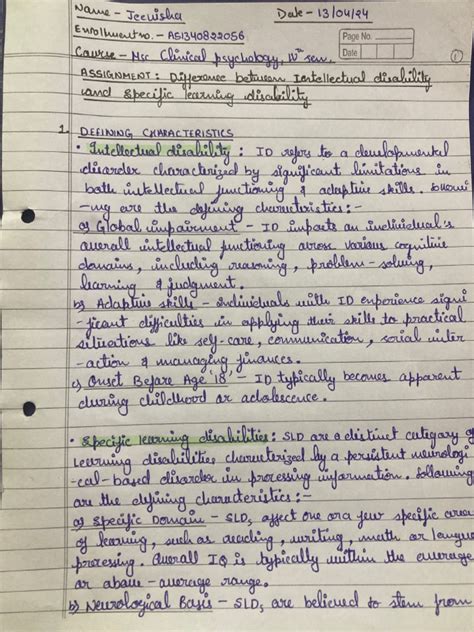 Name - Jeevisha Date - 13/04/24
Enrollment no. - ASI340822056
Page No.
Date
Course - Msc Clinical psychology, IVth sem.
1
ASSIGNMENT : Difference between Intellectual disability
and specific learning disability
1. DEFINING CHARACTERISTICS
• Intellectual disability : ID refers to a developmental
disorder characterized by significant limitations in
both intellectual functioning & adaptive skills. Followi
-ng are the defining characteristics :-
a) Global impairment - ID impacts an individual's
overall intellectual functioning across various cognitive
domains, including reasoning, problem-solving,
learning & judgment.
b) Adaptive skills - Individuals with ID experience signi
-ficant difficulties in applying their skills to practical
situations like self-care, communication, social inter
-action & managing finances.
c) Onset Before Age '18' - ID typically becomes apparent
during childhood or adolescence.
• Specific learning disabilities : SLD are a distinct category of
learning disabilities characterized by a persistent neurologi
-cal-based disorder in processing information. Following
are the defining characteristics :-
a) Specific Domain - SLD, affect one or a few specific areas
of learning, such as reading, writing, math or language
processing. Overall IQ is typically within the average
or above-average range.
b) Neurological Basis - SLD, are believed to stem from